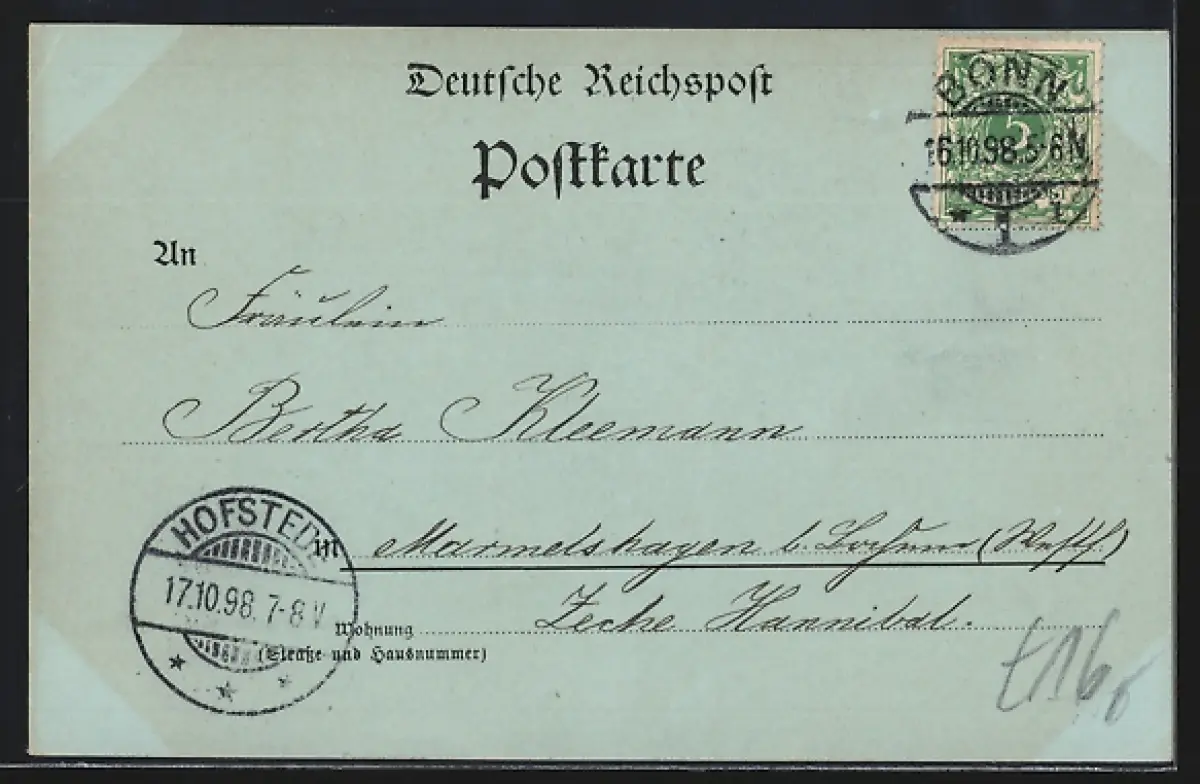 Deutsche Reichspost
Postkarte
BONN
5
16.10.98.5-6N
* 1 i
An
Fräulein
Bertha Kleemann
in Marmelshagen b. Bochum (Westf.)
Zeche Hannibal.
Wohnung
(Straße und Hausnummer)
HOFSTEDE
17.10.98.7-8V
* * *